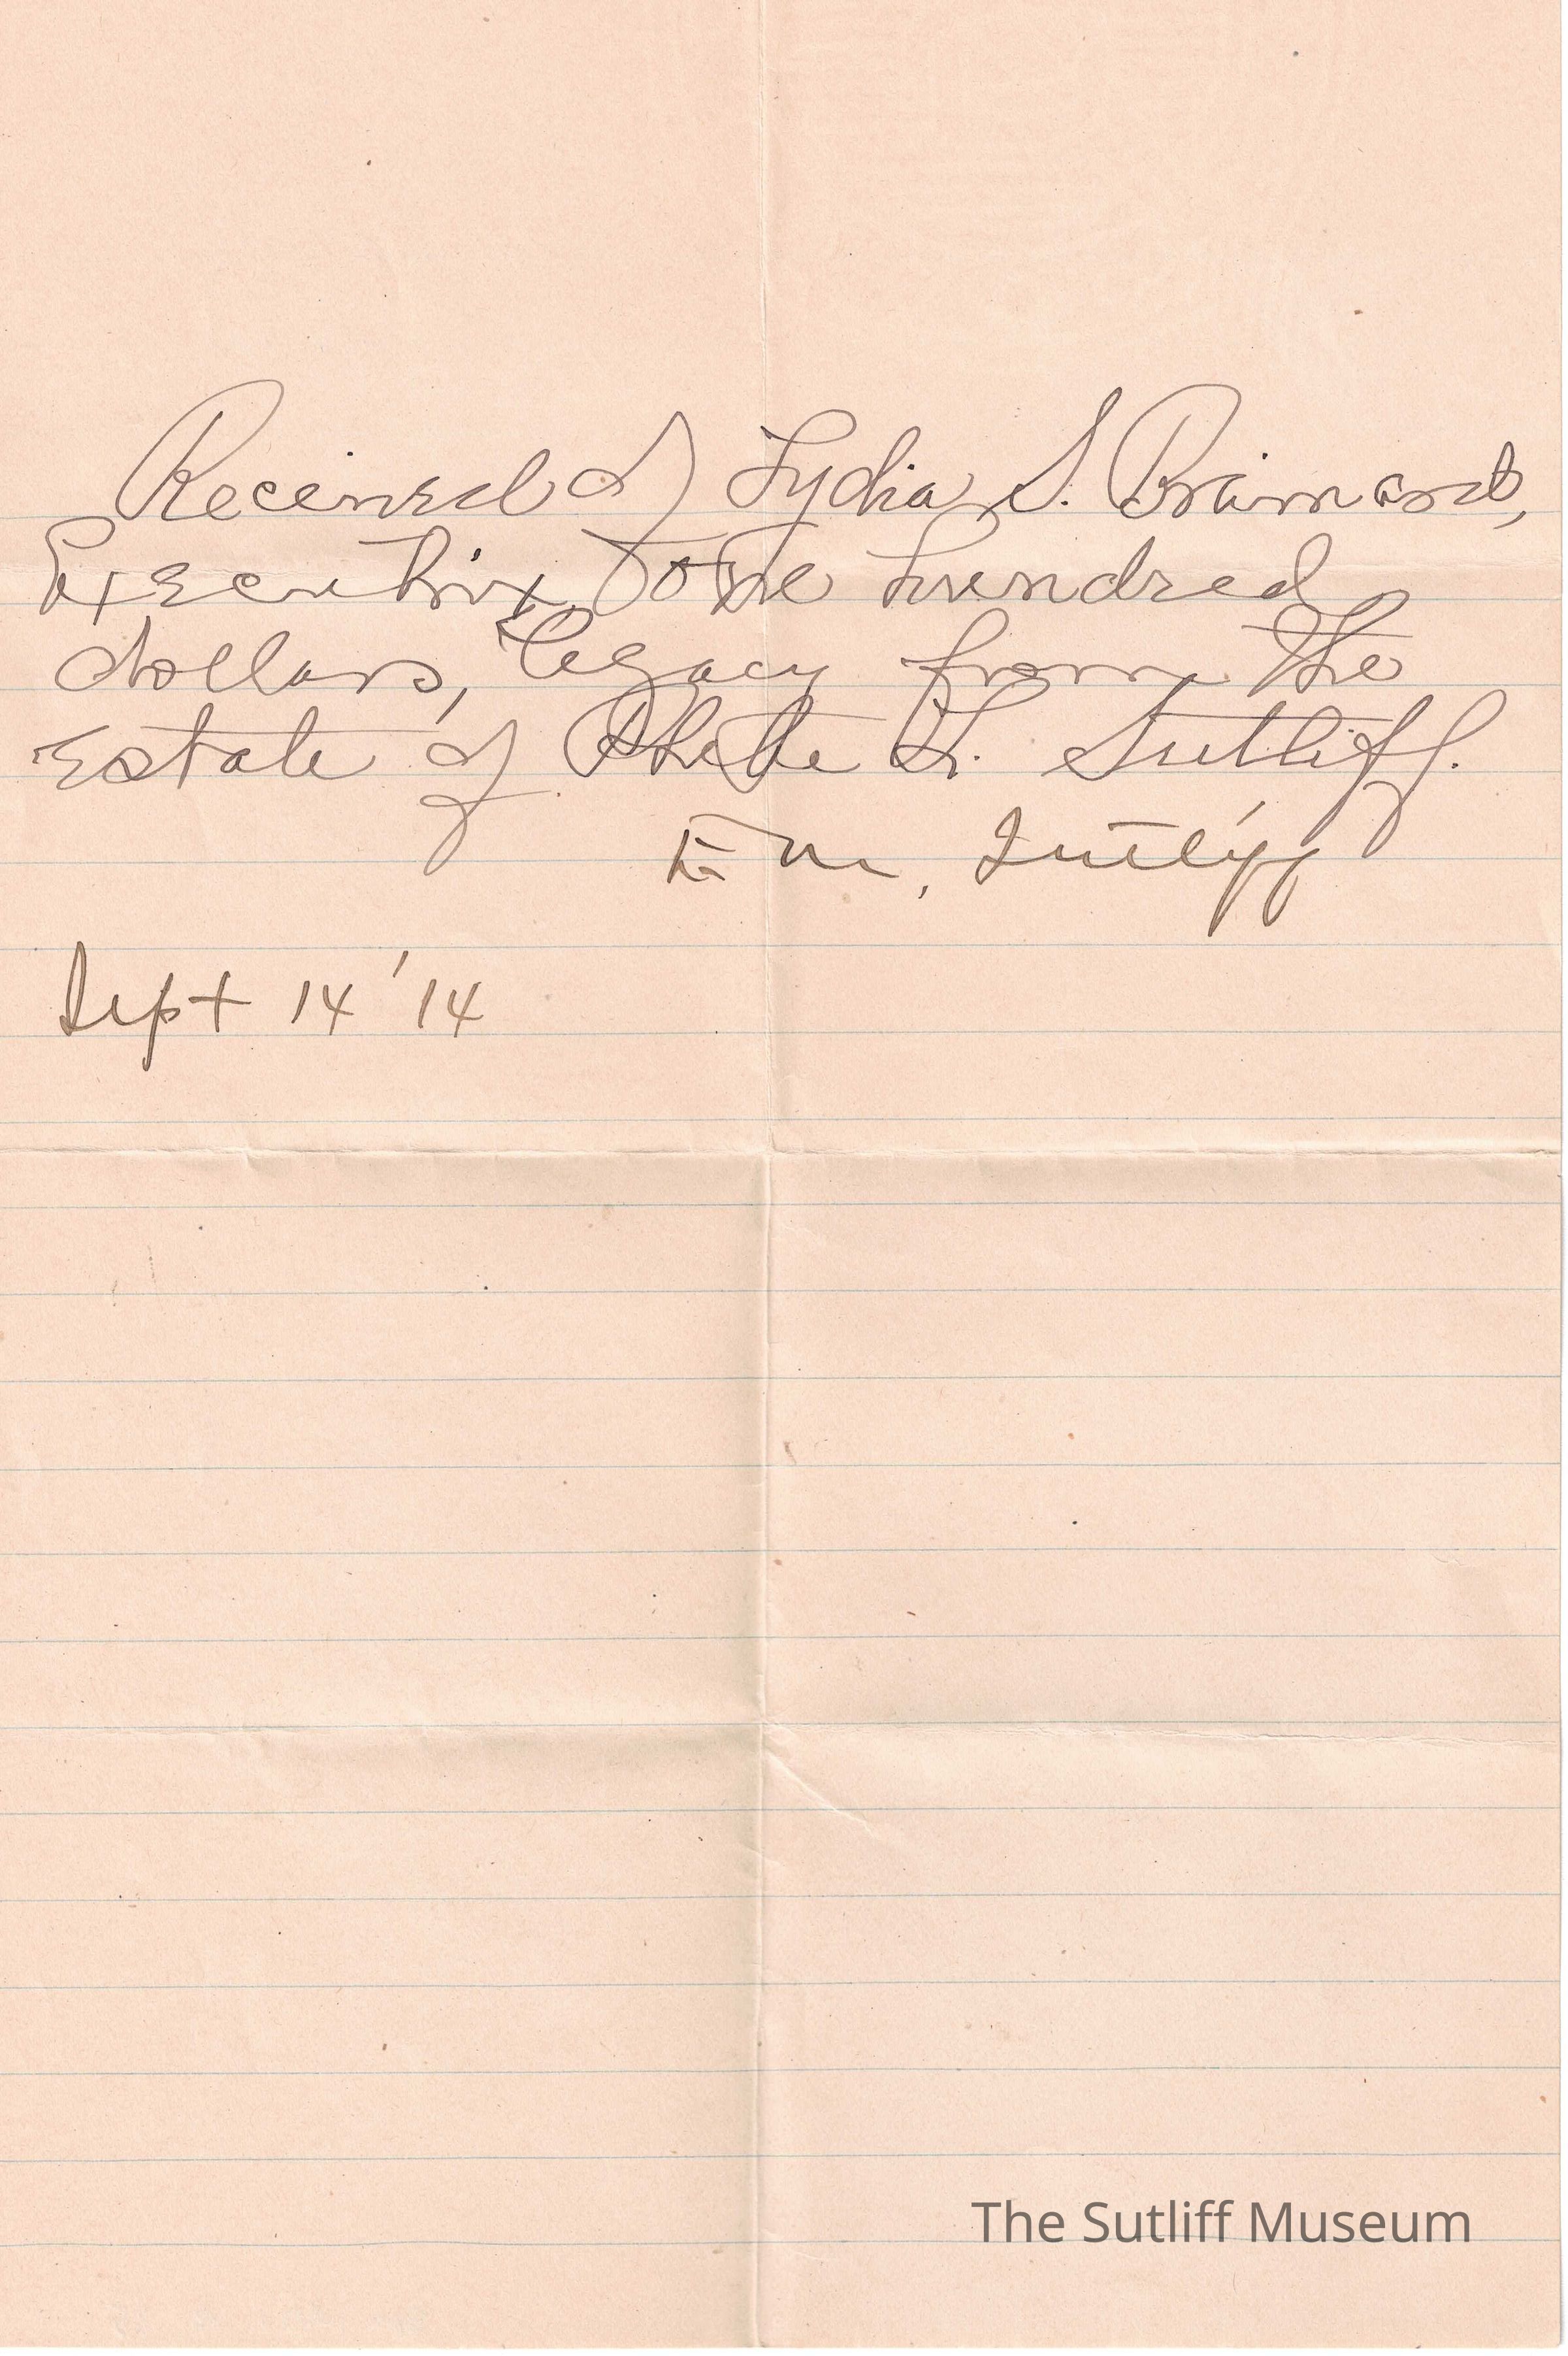 Received of Lydia S. Brainard,
Executrix, One hundred
dollars, legacy from the
Estate of Phebe L. Sutliff.
E M, Sutliff
Sept 14 '14
The Sutliff Museum